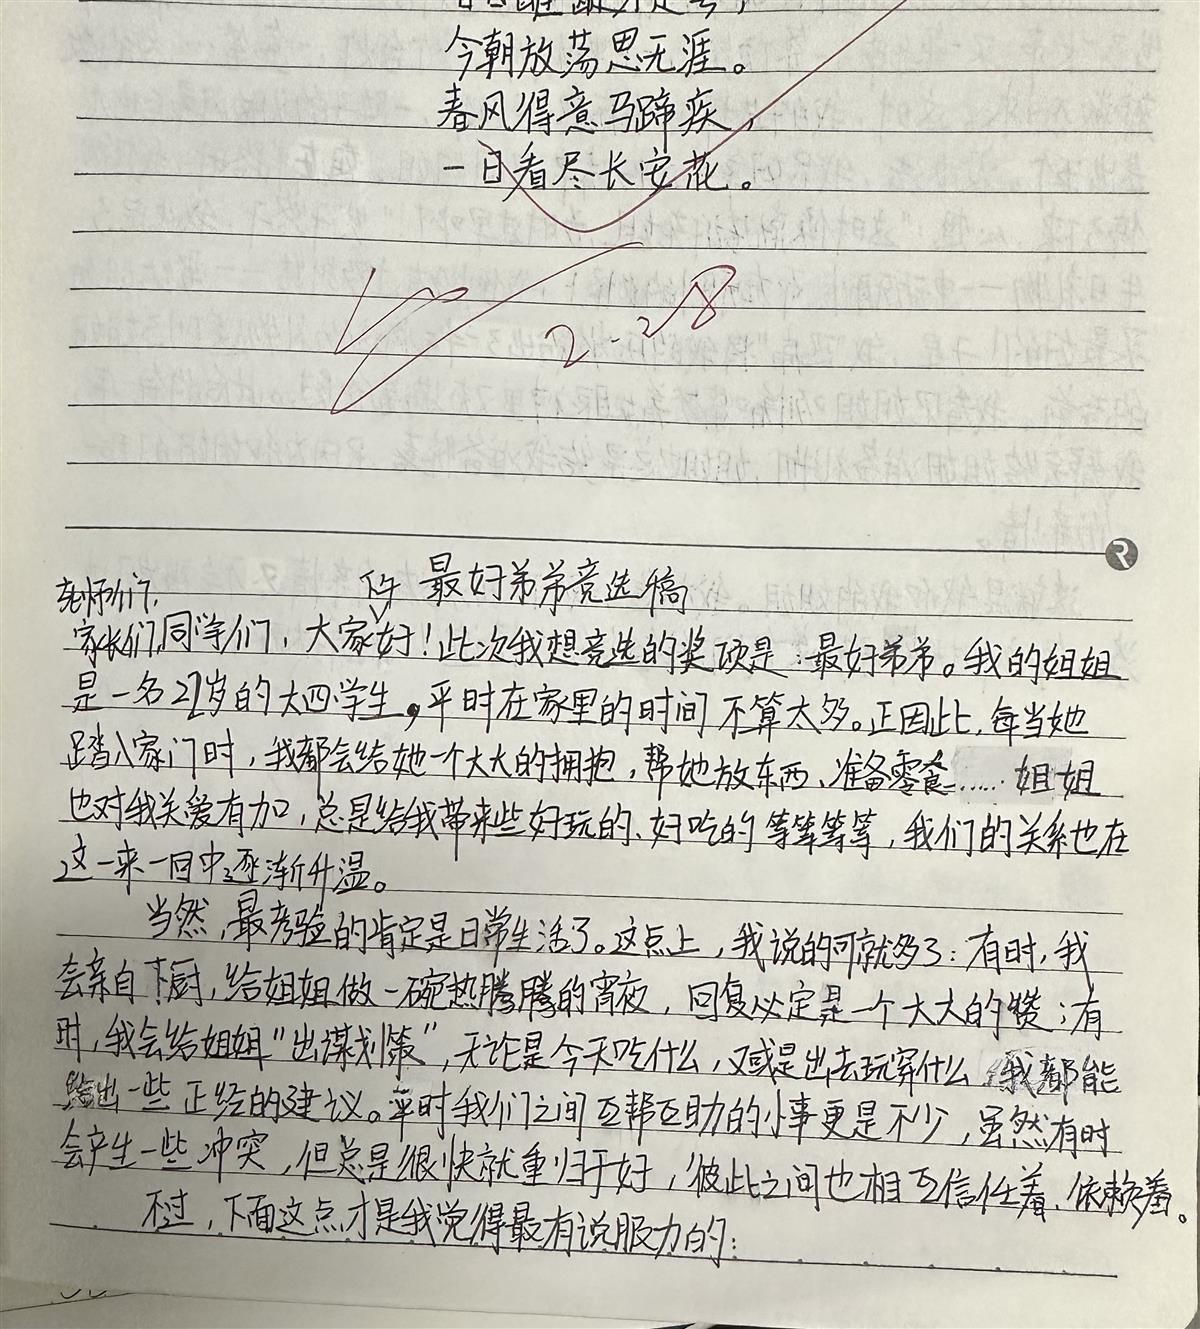 今朝放荡思无涯。
春风得意马蹄疾,
一日看尽长安花。
2.28
最好弟弟竞选稿
老师们,
家长们,同学们,大家下午好!此次我想竞选的奖项是:最好弟弟。我的姐姐
是一名22岁的大四学生,平时在家里的时间不算太多。正因此,每当她
踏入家门时,我都会给她一个大大的拥抱,帮她放东西、准备零食……姐姐
也对我关爱有加,总是给我带来些好玩的、好吃的等等等等,我们的关系也在
这一来一回中逐渐升温。
当然,最考验的肯定是日常生活了。这点上,我说的可就多了:有时,我
会亲自下厨,给姐姐做一碗热腾腾的宵夜,回复必定是一个大大的赞;有
时,我会给姐姐“出谋划策”,无论是今天吃什么,又或是出去玩穿什么,我都能
给出一些正经的建议。平时我们之间互帮互助的小事更是不少,虽然有时
会产生一些冲突,但总是很快就重归于好,彼此之间也相互信任着、依赖着。
不过,下面这点才是我觉得最有说服力的: